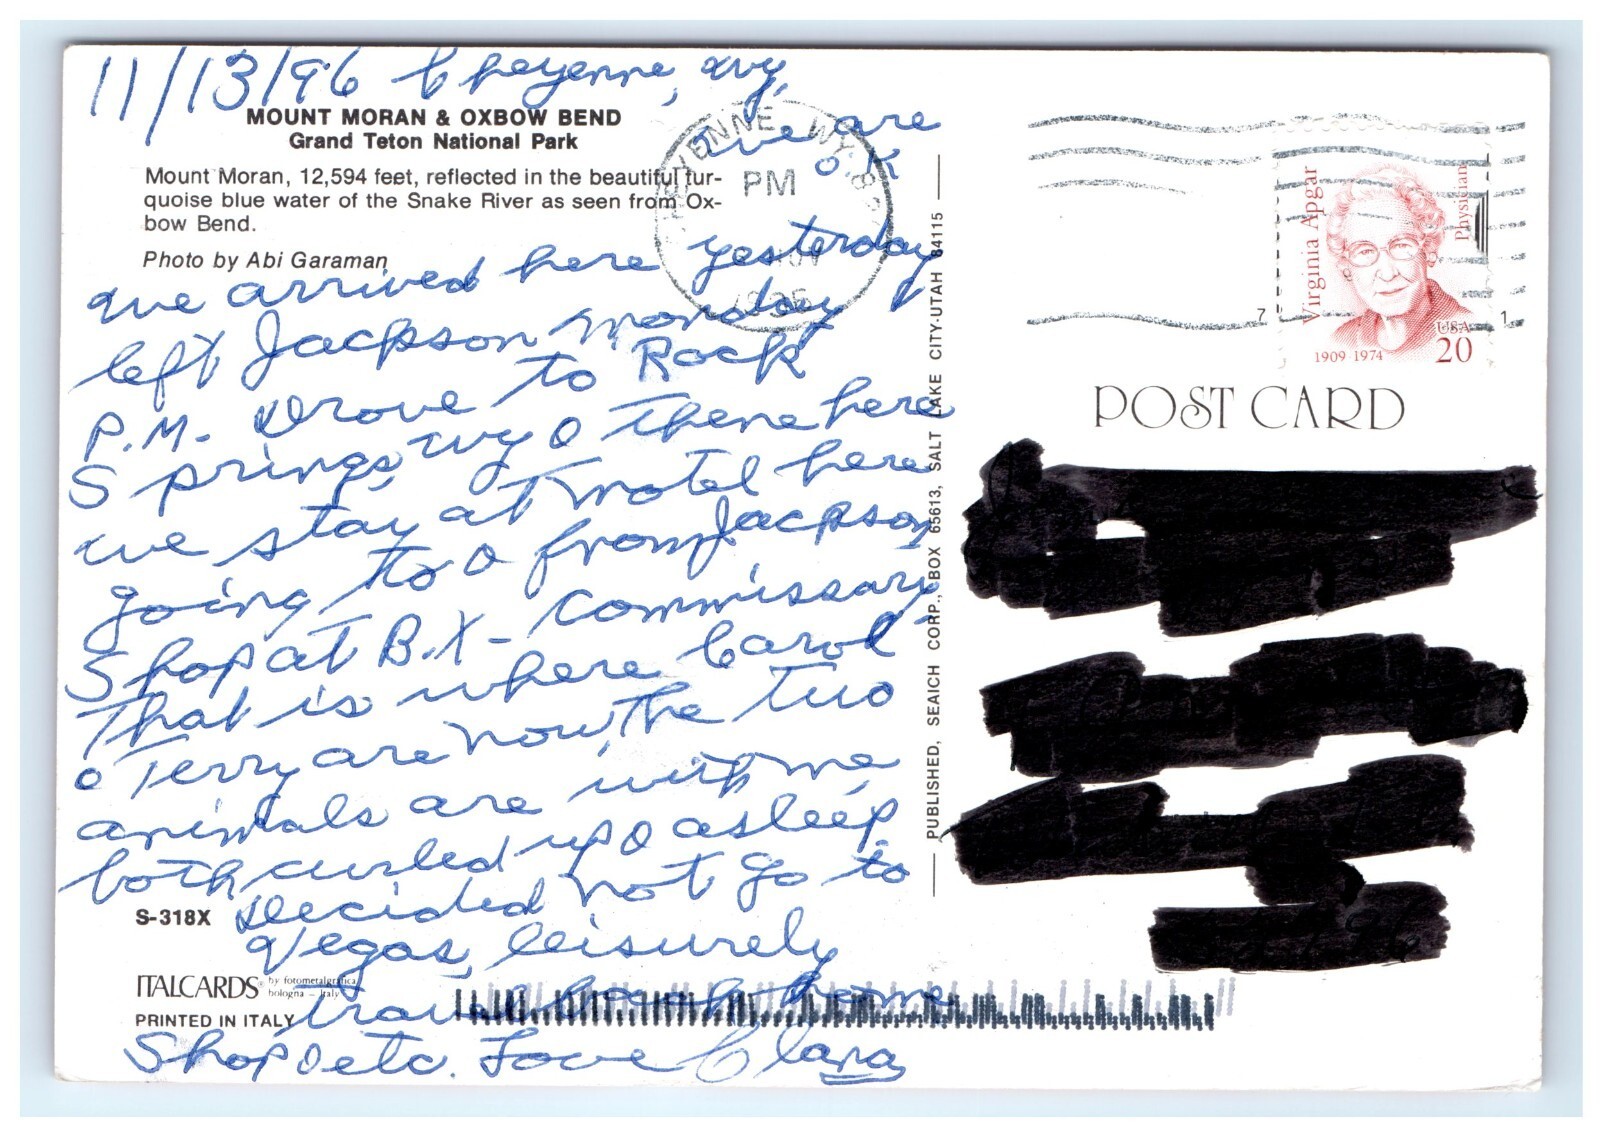 11/13/96 Cheyenne, Wy,
MOUNT MORAN & OXBOW BEND
Grand Teton National Park
we are
O.K
Mount Moran, 12,594 feet, reflected in the beautiful tur-
quoise blue water of the Snake River as seen from Ox-
bow Bend.
Photo by Abi Garaman
we arrived here yesterday
left Jackson monday
P.M. Drove to Rock
Springs, Wyo there here
we stay at motel here
going to & from Jackson
Shop at B.X- commissary
That is where Carol
& Terry are now, The two
animals are with me
both curled up & asleep
Decided not go to
Vegas, leisurely
travel back home
Shop & etc. Love Clara
S-318X
ITALCARDS by fotometalgrafica
bologna - Italy
PRINTED IN ITALY
PUBLISHED, SEAICH CORP., BOX 65613, SALT LAKE CITY-UTAH 84115
CHEYENNE WY
PM
NOV
Virginia Apgar
Physician
1909 1974
USA
20
7
1
POST CARD